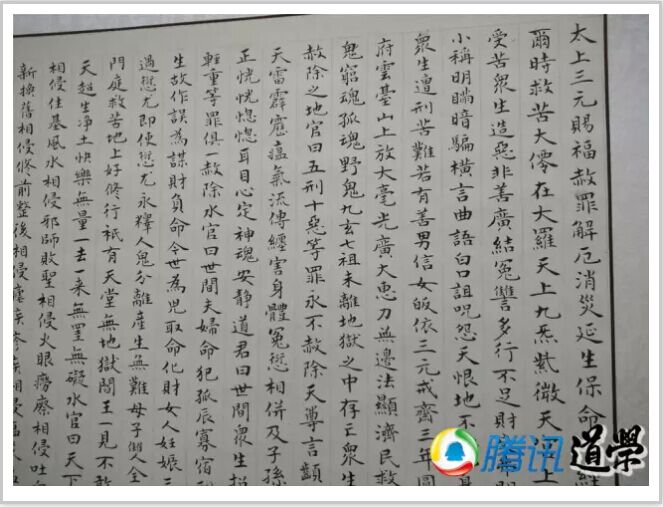 太上三元賜福赦罪解厄消災延生保命
爾時救苦大仙在大羅天上九炁紫微天
受苦衆生造惡非善廣結冤讐多行不足財
小稱明瞞暗騙橫言曲語白口詛呪怨天恨地不
衆生遭刑苦難若有善男信女皈依三元戒齋三年圓
府雲臺山上放大毫光廣大惠刀無邊法顯濟民救
鬼窮魂孤魂野鬼九玄七祖未離地獄之中存亡衆生
赦除之地官曰五刑十惡等罪永不赦除天尊言顓
天雷霹靂瘟氣流傳纏害身體冤愆相併及子孫
正恍恍惚惚耳目心定神魂安静道君曰世間衆生招
輕重等罪俱一赦除水官曰世間夫婦命犯孤辰寡宿
生故作誤為謀財負命今世為児取命化財女人妊娠三
過愆尤即便愆尤永釋人鬼分離產生無難母子雙全
門庭救苦地上好修行衹有天堂無地獄閻王一見不敢
天超生浄土快樂無量一去一来無罣無礙水官曰天下
相侵住基風水相侵邪師敗聖相侵火眼癆瘵相侵吐
新換舊相侵修前整後相侵
腾讯道學